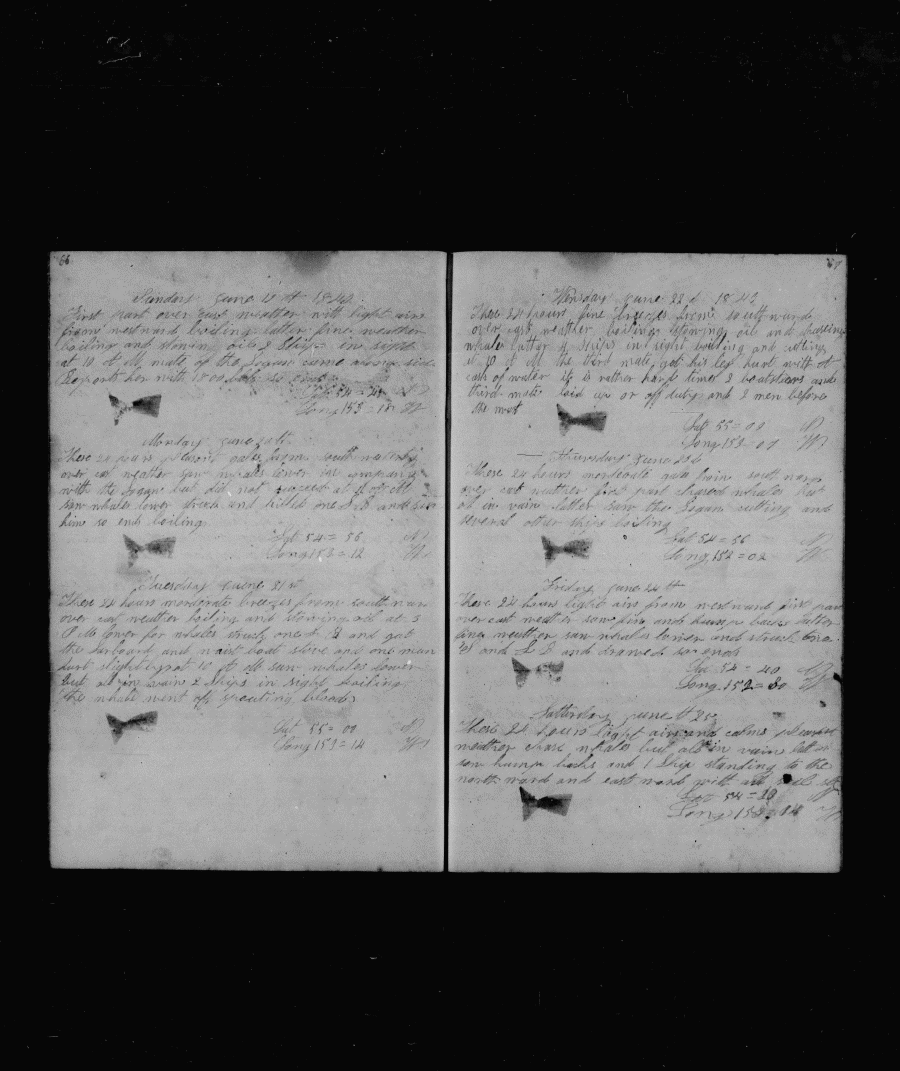 66
Sunday June 19 th 1842
First part over cast weather with light airs
from westward boiling latter fine weather
boiling and stowing oil 2 Ships in sight
at 10 A M mate of the Logan came along side
Reports her with 1800 bbls so ends
Lat 54 = 48 N
Long 153 = 18 W
Monday June 20 th
These 24 hours pleasant gales from southward
over cast weather saw whales lower in company
with the Logan but did not succeed at
saw whales lower struck and killed one L B and
him so ends boiling
Lat 54 = 56 N
Long 153 = 12 W
Tuesday June 21 st
These 24 hours moderate breezes from southward
over cast weather boiling and stowing oil at 3
P M lower for whales struck one L B and got
the larboard and waist boat stove and one man
hurt slightly at 10 A M saw whales lower
but all in vain 2 Ships in sight boiling
the whale went off spouting blood
Lat 55 = 00 N
Long 153 = 14 W
67
Wensday June 22 d 1842
These 24 hours fine breezes from southward
over cast weather boiling stowing oil and chaseing
whales latter 4 Ships in sight boiling and cutting
at 10 A M the third mate got his leg hurt with a
cask of water it is rather hard times 2 boatsteers and
third mate laid up or off duty and 2 men before
the mast
Lat 55 = 00 N
Long 153 = 00 W
Thuersday June 23 d
These 24 hours moderate gales from southward
over cast weather first part chased whales but
all in vain latter saw the Logan cutting and
several other ships boiling
Lat 54 = 56 N
Long 152 = 02 W
Friday June 24 th
These 24 hours light airs from westward first part
over cast weather saw fin and hump backs latter
fine weather saw whales lower and struck one
W and L B and drawed so ends
Lat 54 = 40 N
Long 152 = 80 W
Satturday June th 25
These 24 hours light airs and calms pleasant
weather chase whales but all in vain latter
saw hump backs and 1 Ship standing to the
north ward and east ward with all sail set
Lat 54 = 28 N
Long 152 = 14 W